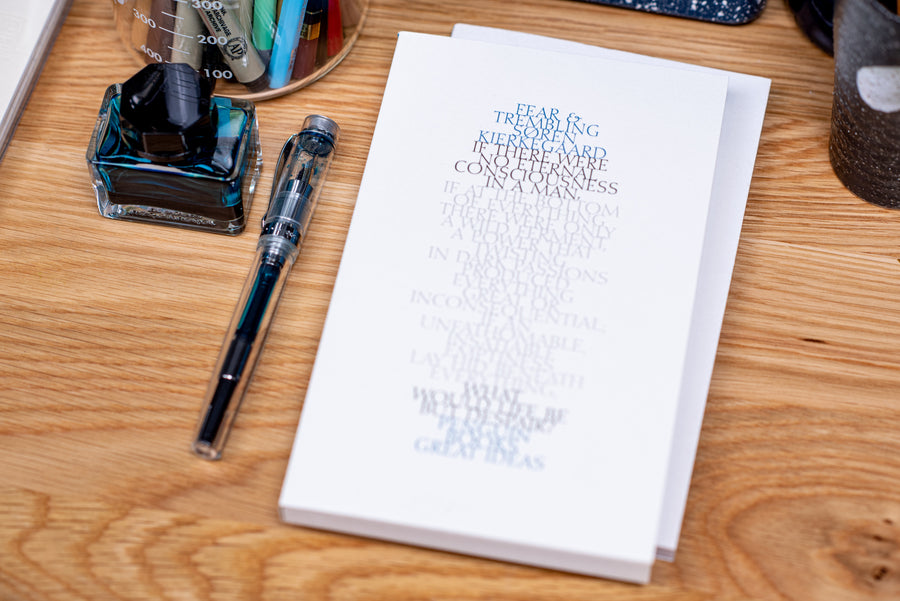 300
200
100
300
400
FEAR &
TREMBLING
SØREN
KIERKEGAARD
IF THERE WERE
NO ETERNAL
CONSCIOUSNESS
IN A MAN,
IF AT THE BOTTOM
OF EVERYTHING
THERE WERE ONLY
A WILD FERMENT,
A POWER THAT
IN DARK PASSIONS
PRODUCED
EVERYTHING
INCONSEQUENTIAL,
UNFATHOMABLE,
INSATIABLE
LAY
WHAT
WOULD LIFE BE
BUT DESPAIR?
PENGUIN
BOOKS
GREAT IDEAS